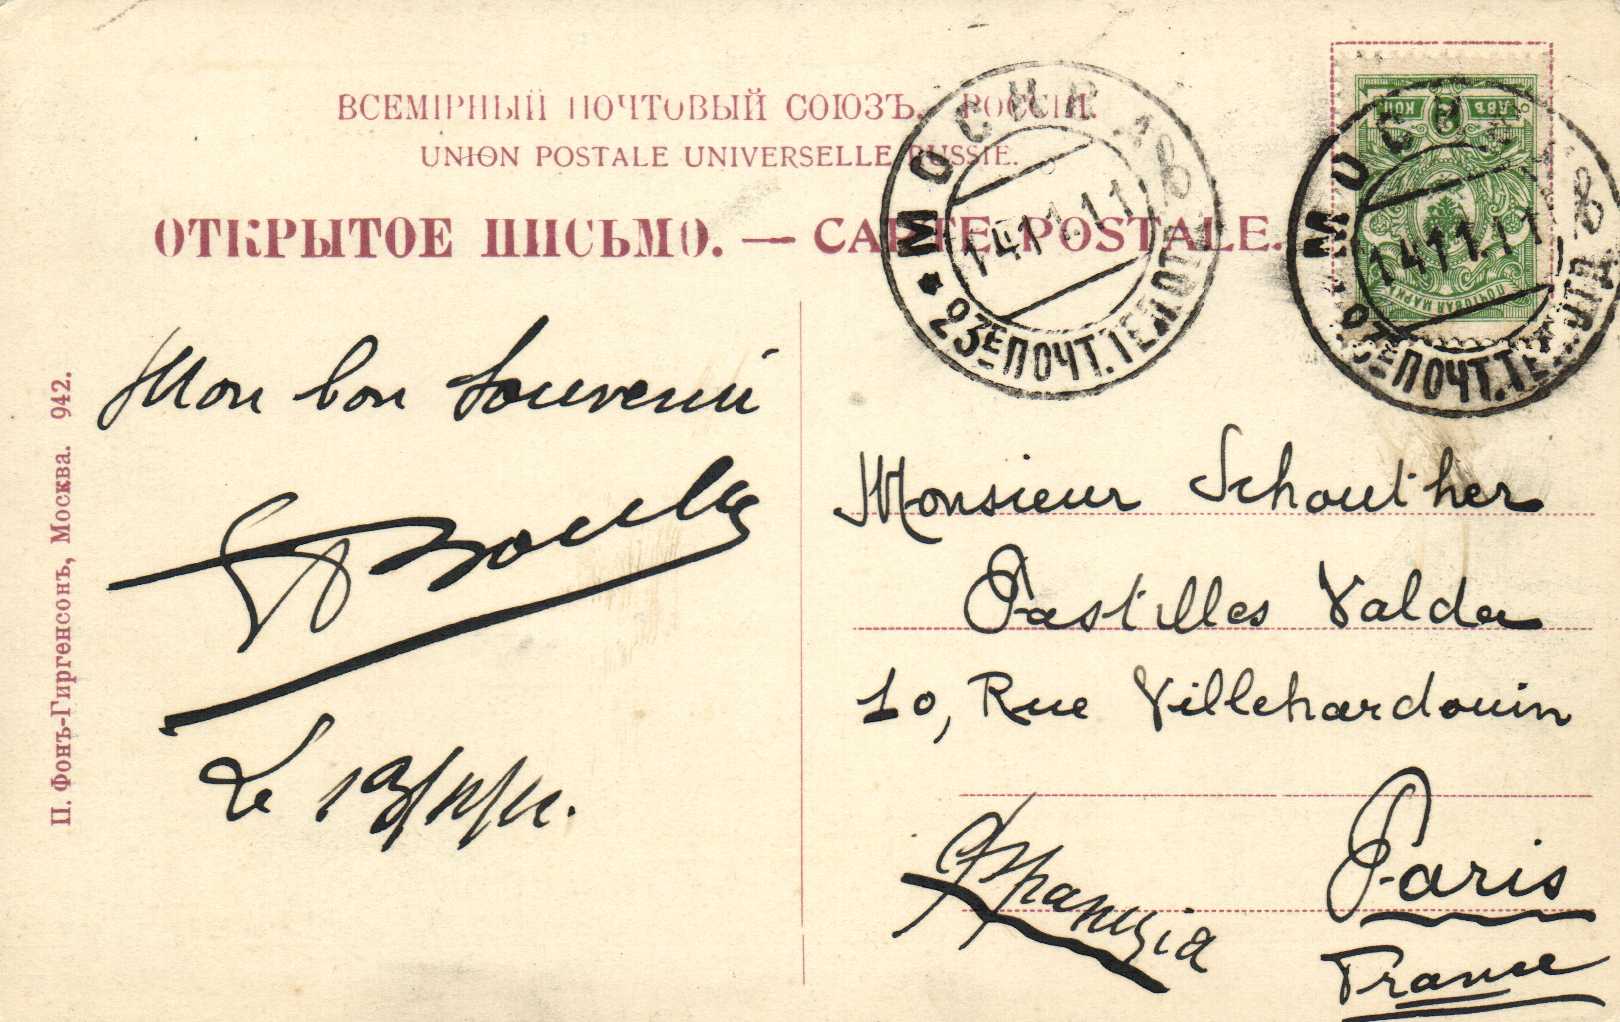 ВСЕМІРНЫЙ ПОЧТОВЫЙ СОЮЗЪ. РОССІЯ.
UNION POSTALE UNIVERSELLE RUSSIE.
ОТКРЫТОЕ ПИСЬМО. — CARTE POSTALE.
МОСКВА 18
14 11.11
23Е ПОЧТ. ТЕЛ. ОТД.
ДВѢ КОП
2
ПОЧТОВАЯ МАРКА
МОСКВА 18
14 11.11
23Е ПОЧТ. ТЕЛ. ОТД.
П. Фонъ-Гиргенсонъ, Москва. 942.
Mon bon souvenir
Le 13/11/11.
Monsieur Schouther
Pastilles Valda
10, Rue Villehardouin
Paris
Франція
France